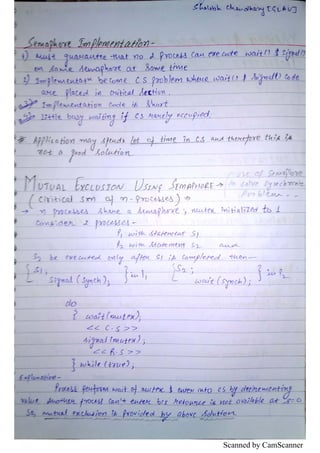 Shirish Chaudhary [SLAU]
Semaphore Implementation-
1) Must guarantee that no 2 process can execute wait() & signal()
on same semaphore at same time
2) Implementatn become C.S problem where wait() & signal() code
are placed in critical section.
Implementation code is short
Little busy waiting if CS rarely occupied
# Application may spends lot of time in C.S and therefore this is
not a good solution.
MUTUAL EXCLUSION USING SEMAPHORE → use of semaphore
to solve synchronizatn
Problem - -
(Critical sxn of n-processes) →
→ n processes share a semaphore, mutex initialized to 1
Consider 2 processes -
P1 with statement S1
P2 with statement S2 and
S2 be executed only after S1 is completed then -
{ S1; } in P1 { S2; } in P2
Signal (Synch); wait (Synch);
do
{ wait(mutex);
<< C.S >>
signal(mutex);
<< R.S >>
} while (true);
Explanation -
Process perform wait of mutex & enter into CS by decrementing
value. Another process can't enter bcs resource is not available at S=0
So, mutual exclusion is provided by above solution.
Scanned by CamScanner